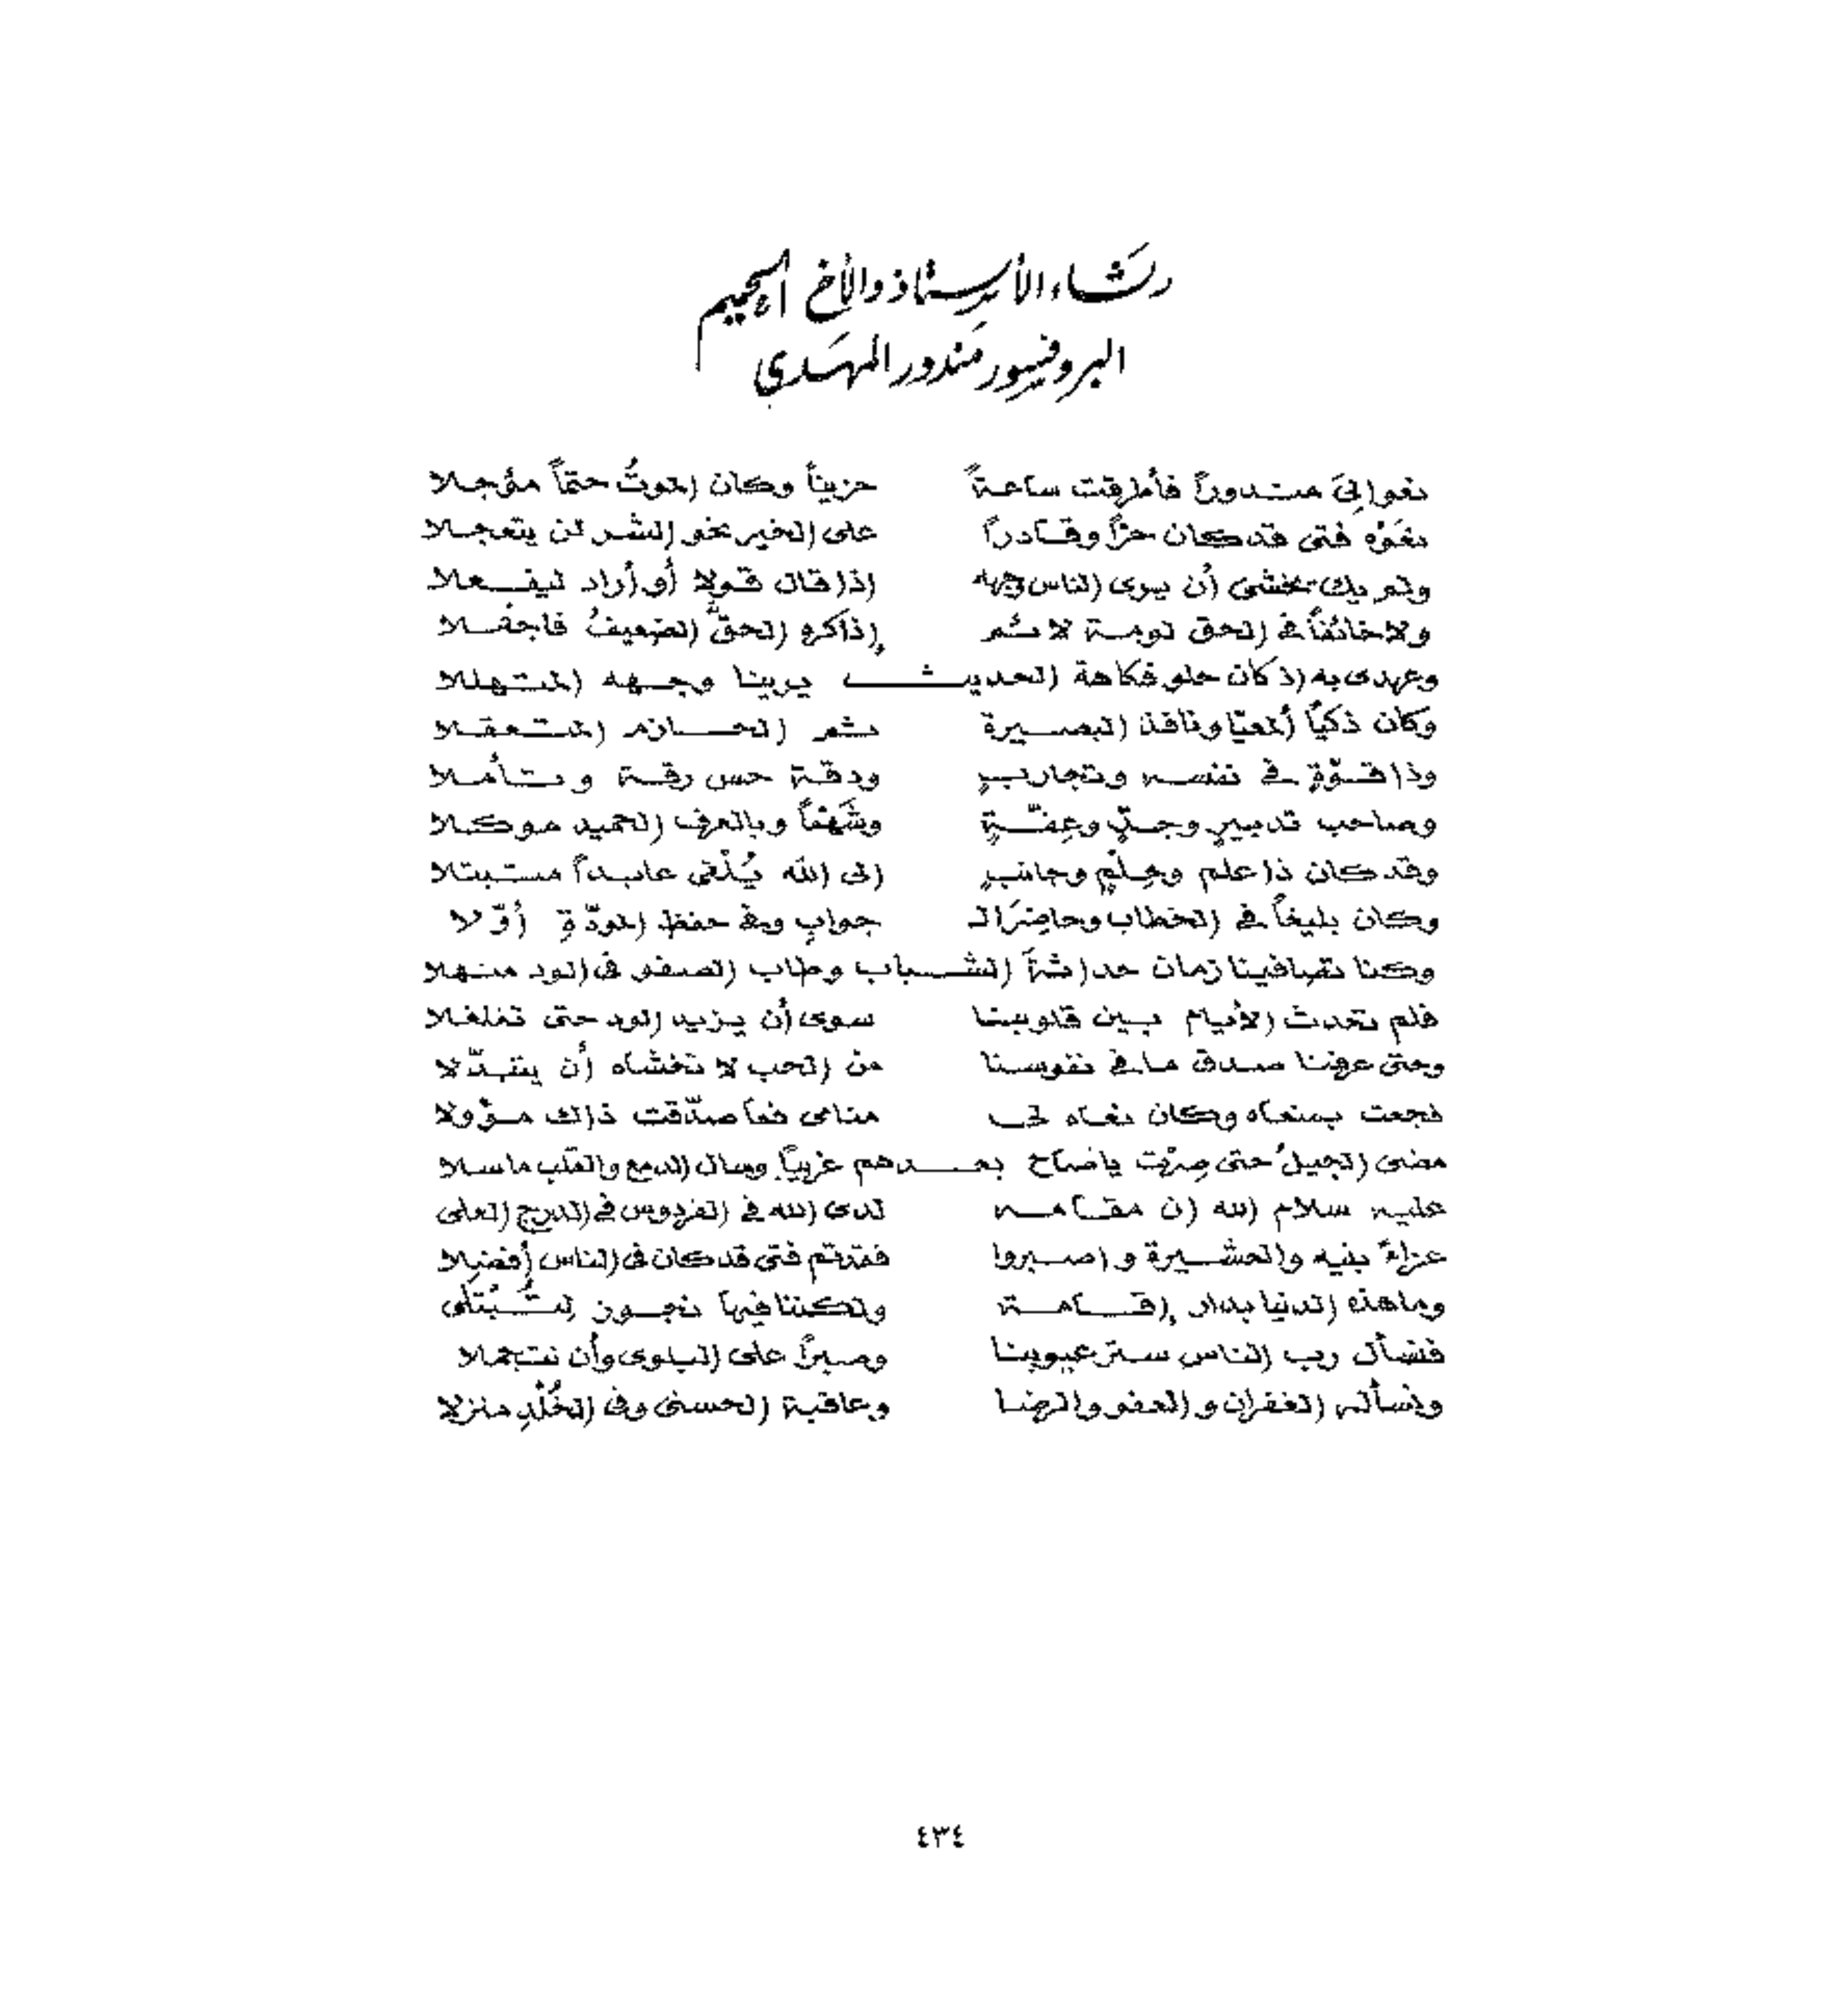 رثاء الأستاذ والأخ الحميم
البروفيسور مندور المهدي
نعوا لِيَ مندوراً فأطرقت ساعةً حزيناً وكان الموتُ حتماً مؤجلا
نعَوْه فتى قد كان حرّاً وقادراً على الخير نحو الشر لن يتعجلا
ولم يك يخشى أن يرى الناس وجهه إذا قال قولا أو أراد ليفعلا
ولا خائفاً في الحق لومة لائم إذا كره الحقَّ الضعيفُ فاجفلا
وعهدى به إذ كان حلو فكاهة الحديث يرينا وجهه المتهللا
وكان ذكيّاً ألمعيّا ونافذ البصيرة ثم الحازم المتعقلا
وذا قوّةٍ في نفسه وتجاربٍ ودقة حس رقة وتأملا
وصاحب تدبيرٍ وجدٍّ وعِفّةٍ وشَهْماً وبالعرف الحميد موكلا
وقد كان ذا علم وحِلْمٍ وجانبٍ إلى الله يُلْفى عابداً مستبتلا
وكان بليغاً في الخطاب وحاضِرَ الـ جوابِ وفي حفظ المودّةِ أوّلا
وكنا تصافينا زمان حداثةَ الشباب وطاب الصفو في الود منهلا
فلم تحدث الأيام بين قلوبنا سوى أن يزيد الود حتى تغلغلا
وحتى عرفنا صدق ما في نفوسنا من الحب لا نخشاه أن يتبدّلا
فجعت بمنعاه وكان نعاه لى منامى فما صدّقت ذلك مؤولا
مضى الجيلُ حتى صِرْت ياصاح بعدهم غريباً وسال الدمع والقلب ماسلا
عليه سلام الله إن مقامه لدى الله في الفردوس في الدرج العلى
عزاءً بنيه والعشيرة واصبروا فقدتم فتى قد كان في الناس أفضلا
وما هذه الدنيا بدار إقامة ولكننا فيها نجوز لنُبْتلَى
فنسأل رب الناس ستر عيوبنا وصبراً على البلوى وأن نتجملا
ونسأله الغفران والعفو والرضا وعاقبة الحسنى وفي الخُلْدِ منزلا
٤٣٤